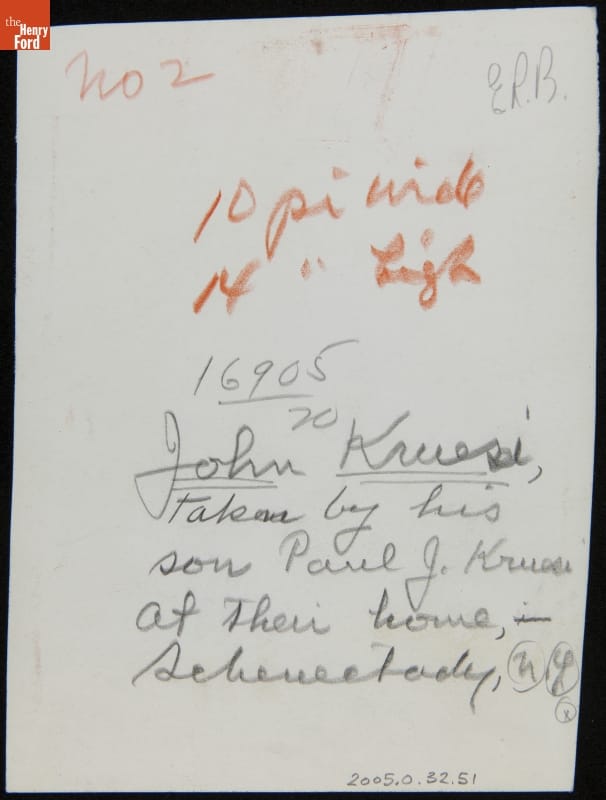 the
Henry
Ford
No 2
E.R.B.
10 pi wide
14 " high
16905
20
John Kruesi,
taken by his
son Paul J. Kruesi
at their home, –
Schenectady, N.Y.
x
2005.0.32.51